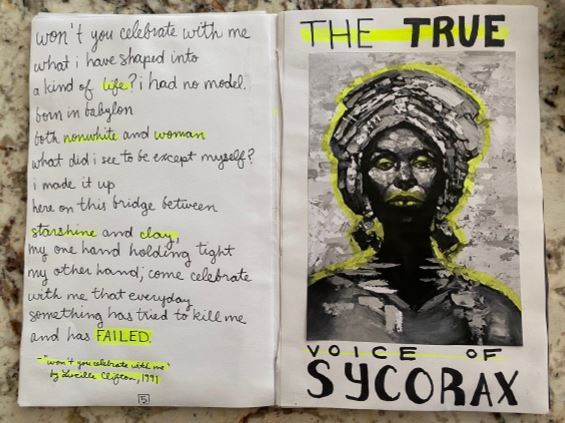 won't you celebrate with me
what i have shaped into
a kind of life? i had no model.
born in babylon
both nonwhite and woman
what did i see to be except myself?
i made it up
here on this bridge between
starshine and clay,
my one hand holding tight
my other hand; come celebrate
with me that everyday
something has tried to kill me
and has FAILED.
- "won't you celebrate with me"
by Lucille Clifton, 1991
5
THE TRUE
VOICE OF
SYCORAX